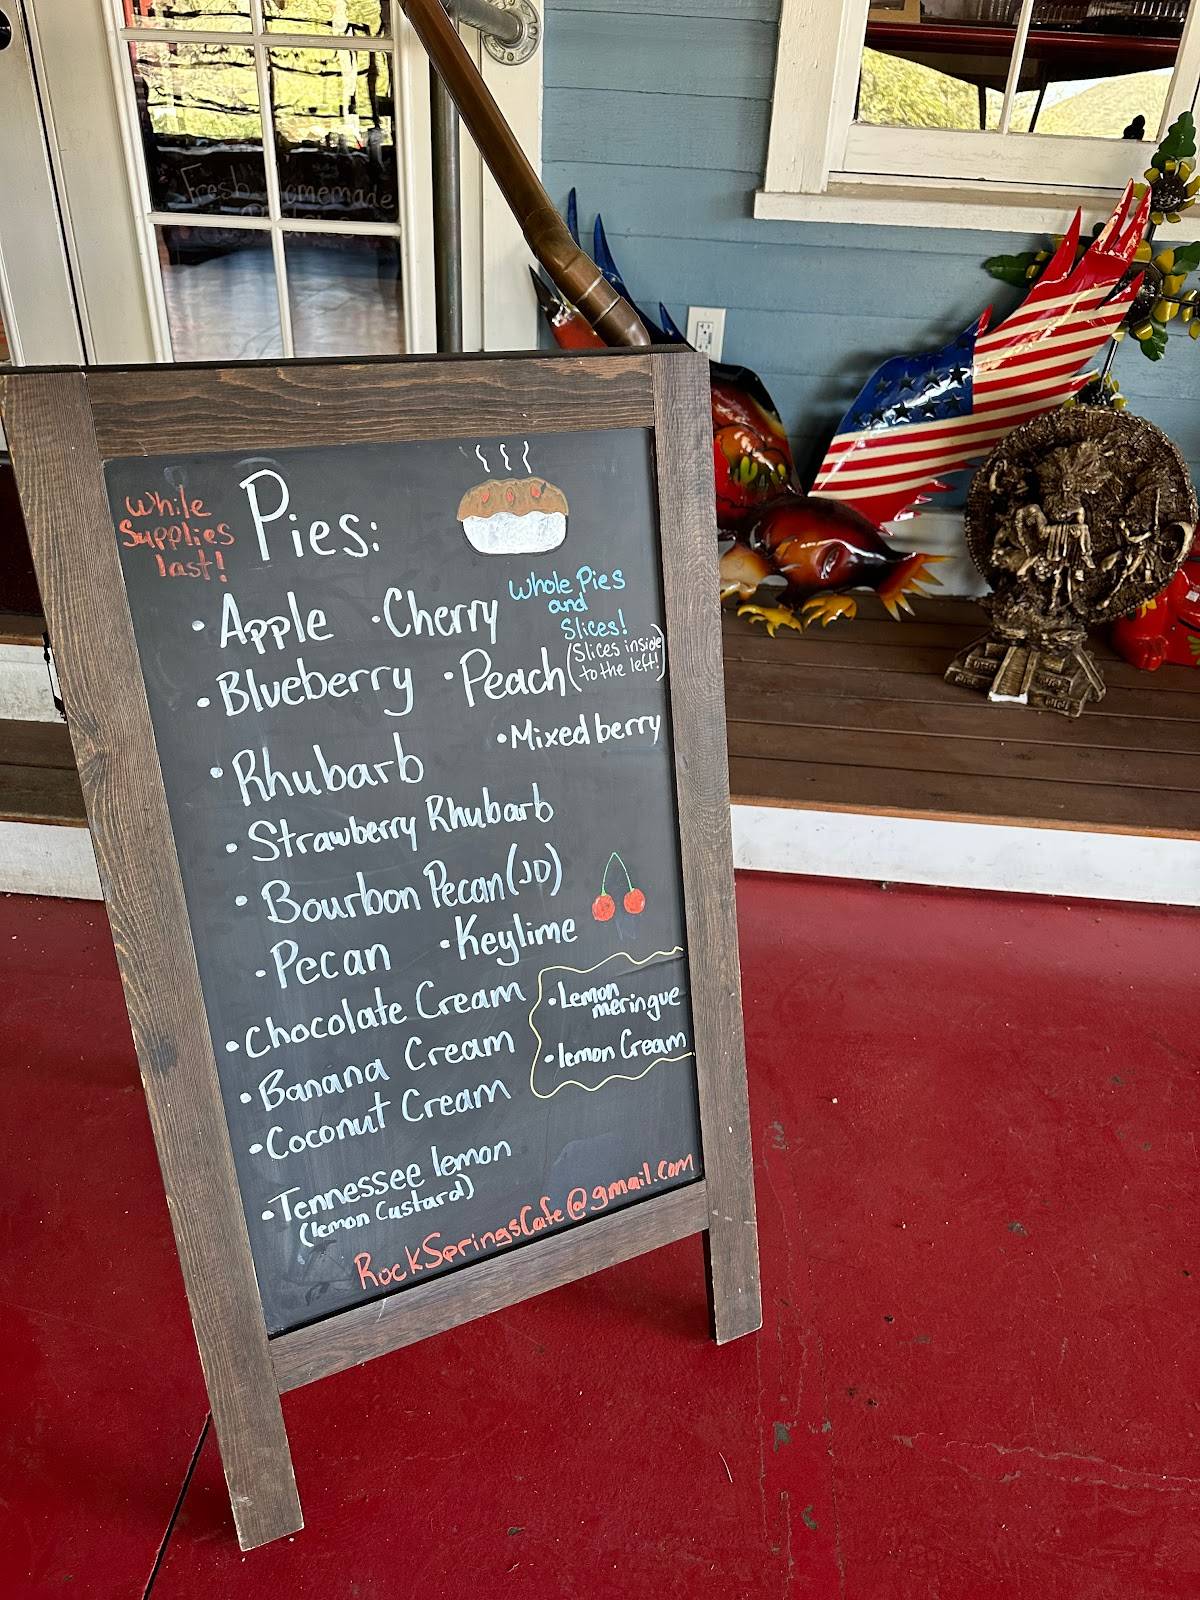 Fresh Homemade
While
Supplies
last!
Pies:
• Apple • Cherry
Whole Pies
and
Slices!
(Slices inside
to the left!)
• Blueberry • Peach
• Mixed berry
• Rhubarb
• Strawberry Rhubarb
• Bourbon Pecan (JD)
• Pecan • Keylime
• Chocolate Cream
• Banana Cream
• Coconut Cream
• Lemon
meringue
• lemon Cream
• Tennessee lemon
(lemon Custard)
RockSpringsCafe@gmail.com